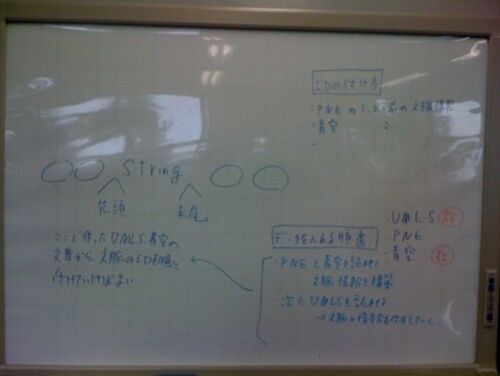 IDの付け方
・PNEの1,2個前の文脈情報
・青空
・
string
先頭
末尾
ここで作ったUMLS、青空の
文章から、文脈のIDを順に
付けていけばよい
・UMLS
・PNE
・青空
データを入れる順番
・PNEと青空を読ませて
文脈情報を構築
・次にUMLSを読ませる
→文脈の情報を付与していく